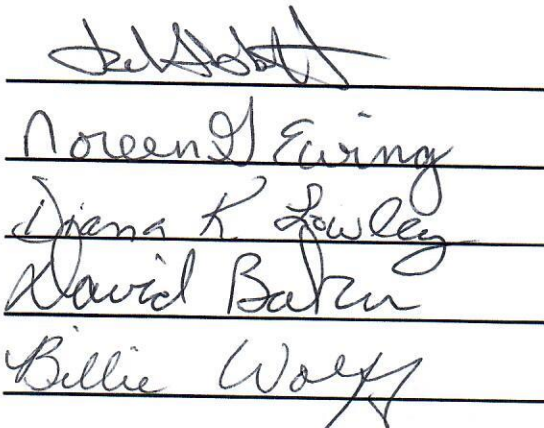 Noreen G Ewing
Diana K Lowley
David Baker
Billie Wolff